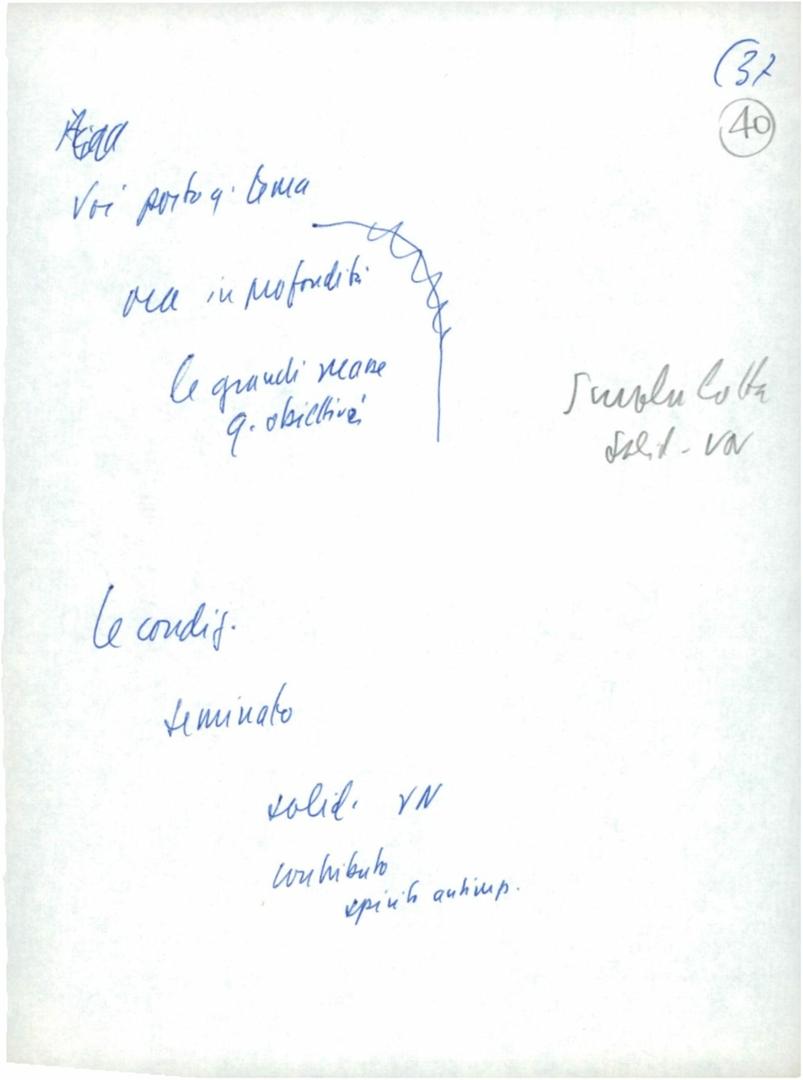 (37
40
Voi posto q. tema
ora in profondità
le grandi masse
q. obiettivi
solid - VN
le condiz.
seminato
solid. VN
contributo
spirito antimp.